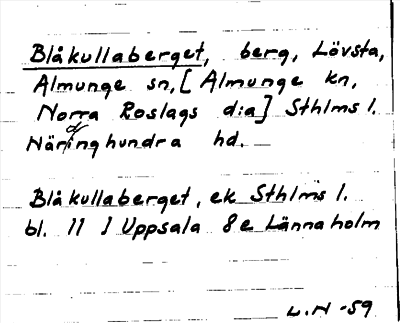 Blåkullaberget, berg, Lövsta,
Almunge sn, [Almunge kn,
Norra Roslags d:a] Sthlms l.
Närdinghundra hd.
Blåkullaberget, ek Sthlms l.
bl. 11 I Uppsala 8e Lännaholm
L.N -59